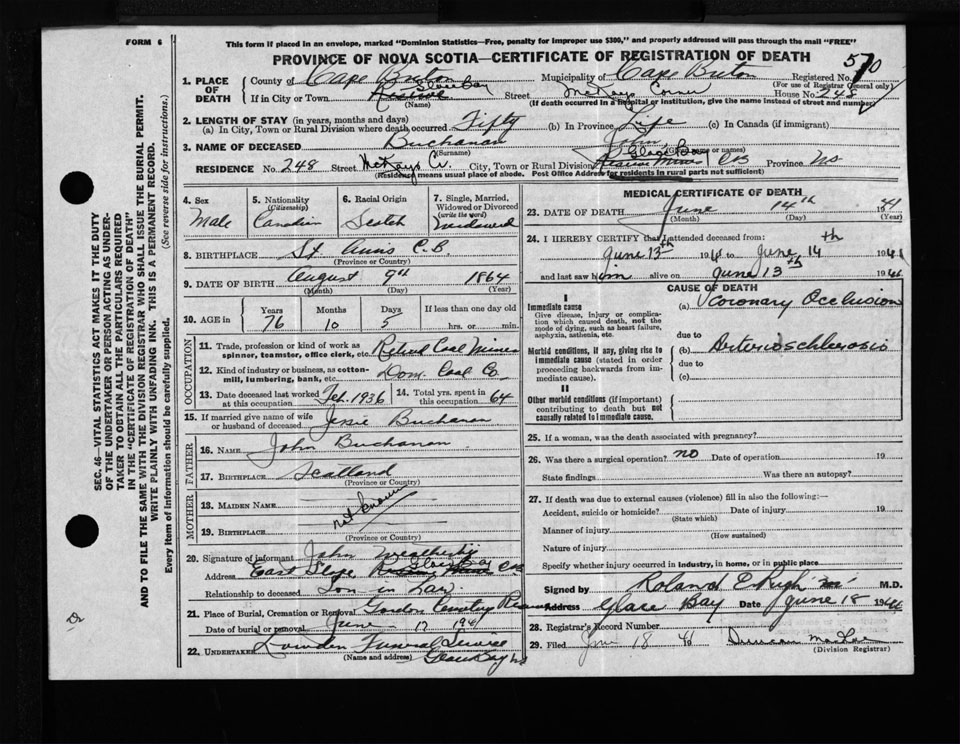 FORM 6
This form if placed in an envelope, marked "Dominion Statistics—Free, penalty for improper use $300," and properly addressed will pass through the mail "FREE"
PROVINCE OF NOVA SCOTIA—CERTIFICATE OF REGISTRATION OF DEATH
SEC. 46—VITAL STATISTICS ACT MAKES IT THE DUTY
OF THE UNDERTAKER OR PERSON ACTING AS UNDER-
TAKER TO OBTAIN ALL THE PARTICULARS REQUIRED
IN THE "CERTIFICATE OF REGISTRATION OF DEATH"
AND TO FILE THE SAME WITH THE DIVISION REGISTRAR WHO SHALL ISSUE THE BURIAL PERMIT.
WRITE PLAINLY WITH UNFADING INK. THIS IS A PERMANENT RECORD.
Every item of information should be carefully supplied. (See reverse side for instructions.)
1. PLACE OF DEATH
County of Cape Breton Municipality of Cape Breton Registered No. 570
(For use of Registrar General only)
If in City or Town Glace Bay Street McKays Corner House No. 248
(Name) (If death occurred in a hospital or institution, give the name instead of street and number)
2. LENGTH OF STAY (in years, months and days)
(a) In City, Town or Rural Division where death occurred Fifty (b) In Province Life (c) In Canada (if immigrant)
3. NAME OF DECEASED Buchanan
(Surname) (Given name or names)
RESIDENCE No. 248 Street McKays Cr. City, Town or Rural Division Glace Bay CB Province NS
(Residence means usual place of abode. Post Office Address for residents in rural parts not sufficient)
4. Sex Male
5. Nationality (Citizenship) Canadian
6. Racial Origin Scotch
7. Single, Married, Widowed or Divorced (write the word) Widowed
8. BIRTHPLACE St. Anns C.B.
(Province or Country)
9. DATE OF BIRTH August 9th 1864
(Month) (Day) (Year)
10. AGE in Years 76 Months 10 Days 5 If less than one day old hrs. or min.
OCCUPATION
11. Trade, profession or kind of work as spinner, teamster, office clerk, etc. Retired Coal Miner
12. Kind of industry or business, as cotton-mill, lumbering, bank, etc. Dom. Coal Co
13. Date deceased last worked at this occupation Feb. 1936
14. Total yrs. spent in this occupation 64
15. If married give name of wife or husband of deceased Jessie Buchanan
FATHER
16. NAME John Buchanan
17. BIRTHPLACE Scotland
(Province or Country)
MOTHER
18. MAIDEN NAME not known
19. BIRTHPLACE
(Province or Country)
20. Signature of informant John
Address East Slope Glace Bay CB
Relationship to deceased Son in Law
21. Place of Burial, Cremation or Removal Gordon Cemetery
Date of burial or removal June 17 194
22. UNDERTAKER Lowden Funeral Service
(Name and address) Glace Bay NS
MEDICAL CERTIFICATE OF DEATH
23. DATE OF DEATH June 14th 1941
(Month) (Day) (Year)
24. I HEREBY CERTIFY that I attended deceased from:
June 13th 194 to June 14th 194
and last saw him alive on June 13th 194
CAUSE OF DEATH
I
Immediate cause
Give disease, injury or complication which caused death, not the mode of dying, such as heart failure, asphyxia, asthenia, etc.
(a) Coronary Occlusion
due to
Morbid conditions, if any, giving rise to immediate cause (stated in order proceeding backwards from immediate cause).
(b) Arterioschlerosis
due to
(c)
II
Other morbid conditions (if important) contributing to death but not causally related to immediate cause.
25. If a woman, was the death associated with pregnancy?
26. Was there a surgical operation? no Date of operation 19
State findings Was there an autopsy?
27. If death was due to external causes (violence) fill in also the following:—
Accident, suicide or homicide? Date of injury 19
(State which)
Manner of injury
(How sustained)
Nature of injury
Specify whether injury occurred in industry, in home, or in public place
Signed by Roland M.D.
Address Glace Bay Date June 18 194
28. Registrar's Record Number
29. Filed Jun 18 Duncan
(Division Registrar)